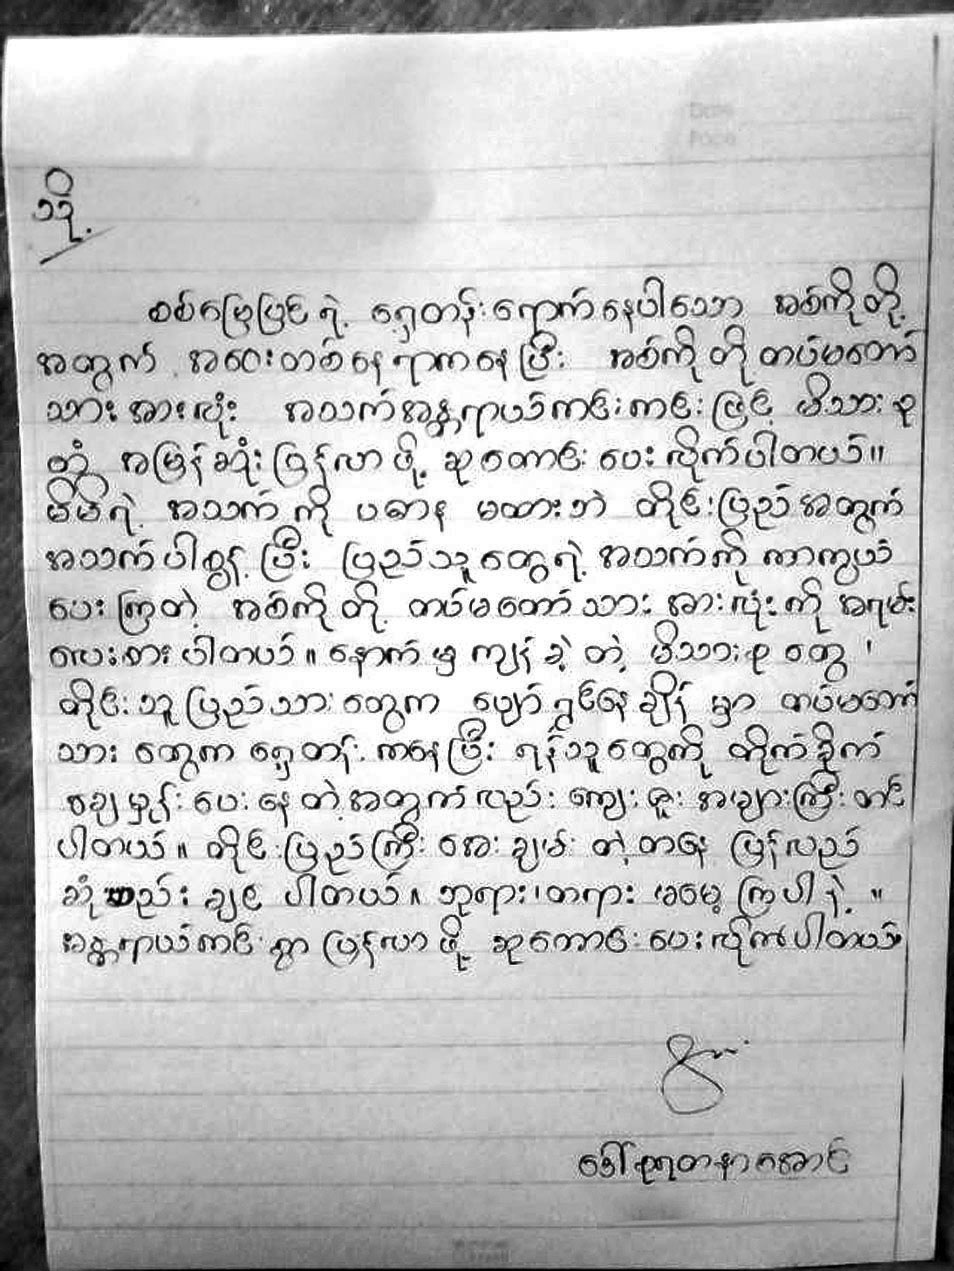 သို့
စစ်မြေပြင်ရဲ့ ရှေ့တန်းရောက်နေပါသော အစ်ကိုတို့
အတွက် အဝေးတစ်နေရာကနေပြီး အစ်ကိုတို့တပ်မတော်
သားအားလုံး အသက်အန္တရာယ်ကင်းကင်းဖြင့် မိသားစု
ထံ အမြန်ဆုံးပြန်လာဖို့ ဆုတောင်းပေးလိုက်ပါတယ်။
မိမိရဲ့ အသက်ကို ပဓာန မထားဘဲ တိုင်းပြည်အတွက်
အသက်ပါစွန့်ပြီး ပြည်သူတွေရဲ့ အသက်ကို ကာကွယ်
ပေးကြတဲ့ အစ်ကိုတို့ တပ်မတော်သားအားလုံးကို အရမ်း
လေးစားပါတယ်။ နောက်မှ ကျန်ခဲ့တဲ့ မိသားစုတွေ၊
တိုင်းသူပြည်သားတွေက ပျော်ရွှင်နေချိန်မှာ တပ်မတော်
သားတွေက ရှေ့တန်းကနေပြီး ရန်သူတွေကို တိုက်ခိုက်
ချေမှုန်းပေးနေတဲ့အတွက်လည်း ကျေးဇူးအများကြီးတင်
ပါတယ်။ တိုင်းပြည်ကြီးအေးချမ်းတဲ့တနေ့ ပြန်လည်
ဆုံစည်းချင်ပါတယ်။ ဘုရား၊တရားမမေ့ကြပါနဲ့။
အန္တရာယ်ကင်းရှာပြန်လာဖို့ ဆုတောင်းပေးလိုက်ပါတယ်
ဒေါ်စုရတနာအောင်